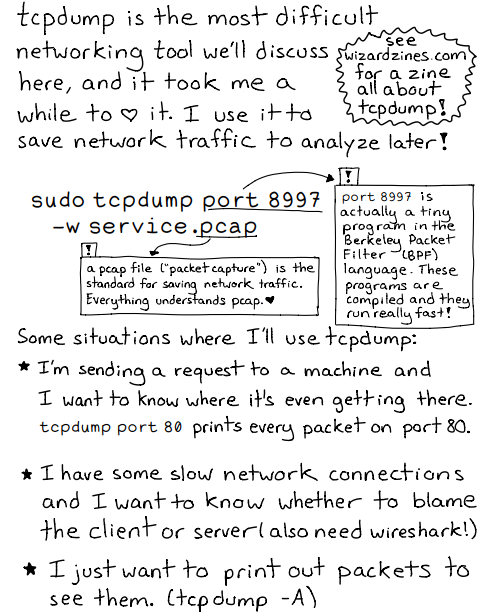 tcpdump is the most difficult
networking tool we'll discuss
here, and it took me a
while to ♡ it. I use it to
save network traffic to analyze later!
see
wizardzines.com
for a zine
all about
tcpdump!
sudo tcpdump port 8997
-w service.pcap
!
port 8997 is
actually a tiny
program in the
Berkeley Packet
Filter (BPF)
language. These
programs are
compiled and they
run really fast!
!
a pcap file ("packet capture") is the
standard for saving network traffic.
Everything understands pcap.♥
Some situations where I'll use tcpdump:
★ I'm sending a request to a machine and
I want to know where it's even getting there.
tcpdump port 80 prints every packet on port 80.
★ I have some slow network connections
and I want to know whether to blame
the client or server (also need wireshark!)
★ I just want to print out packets to
see them. (tcpdump -A)